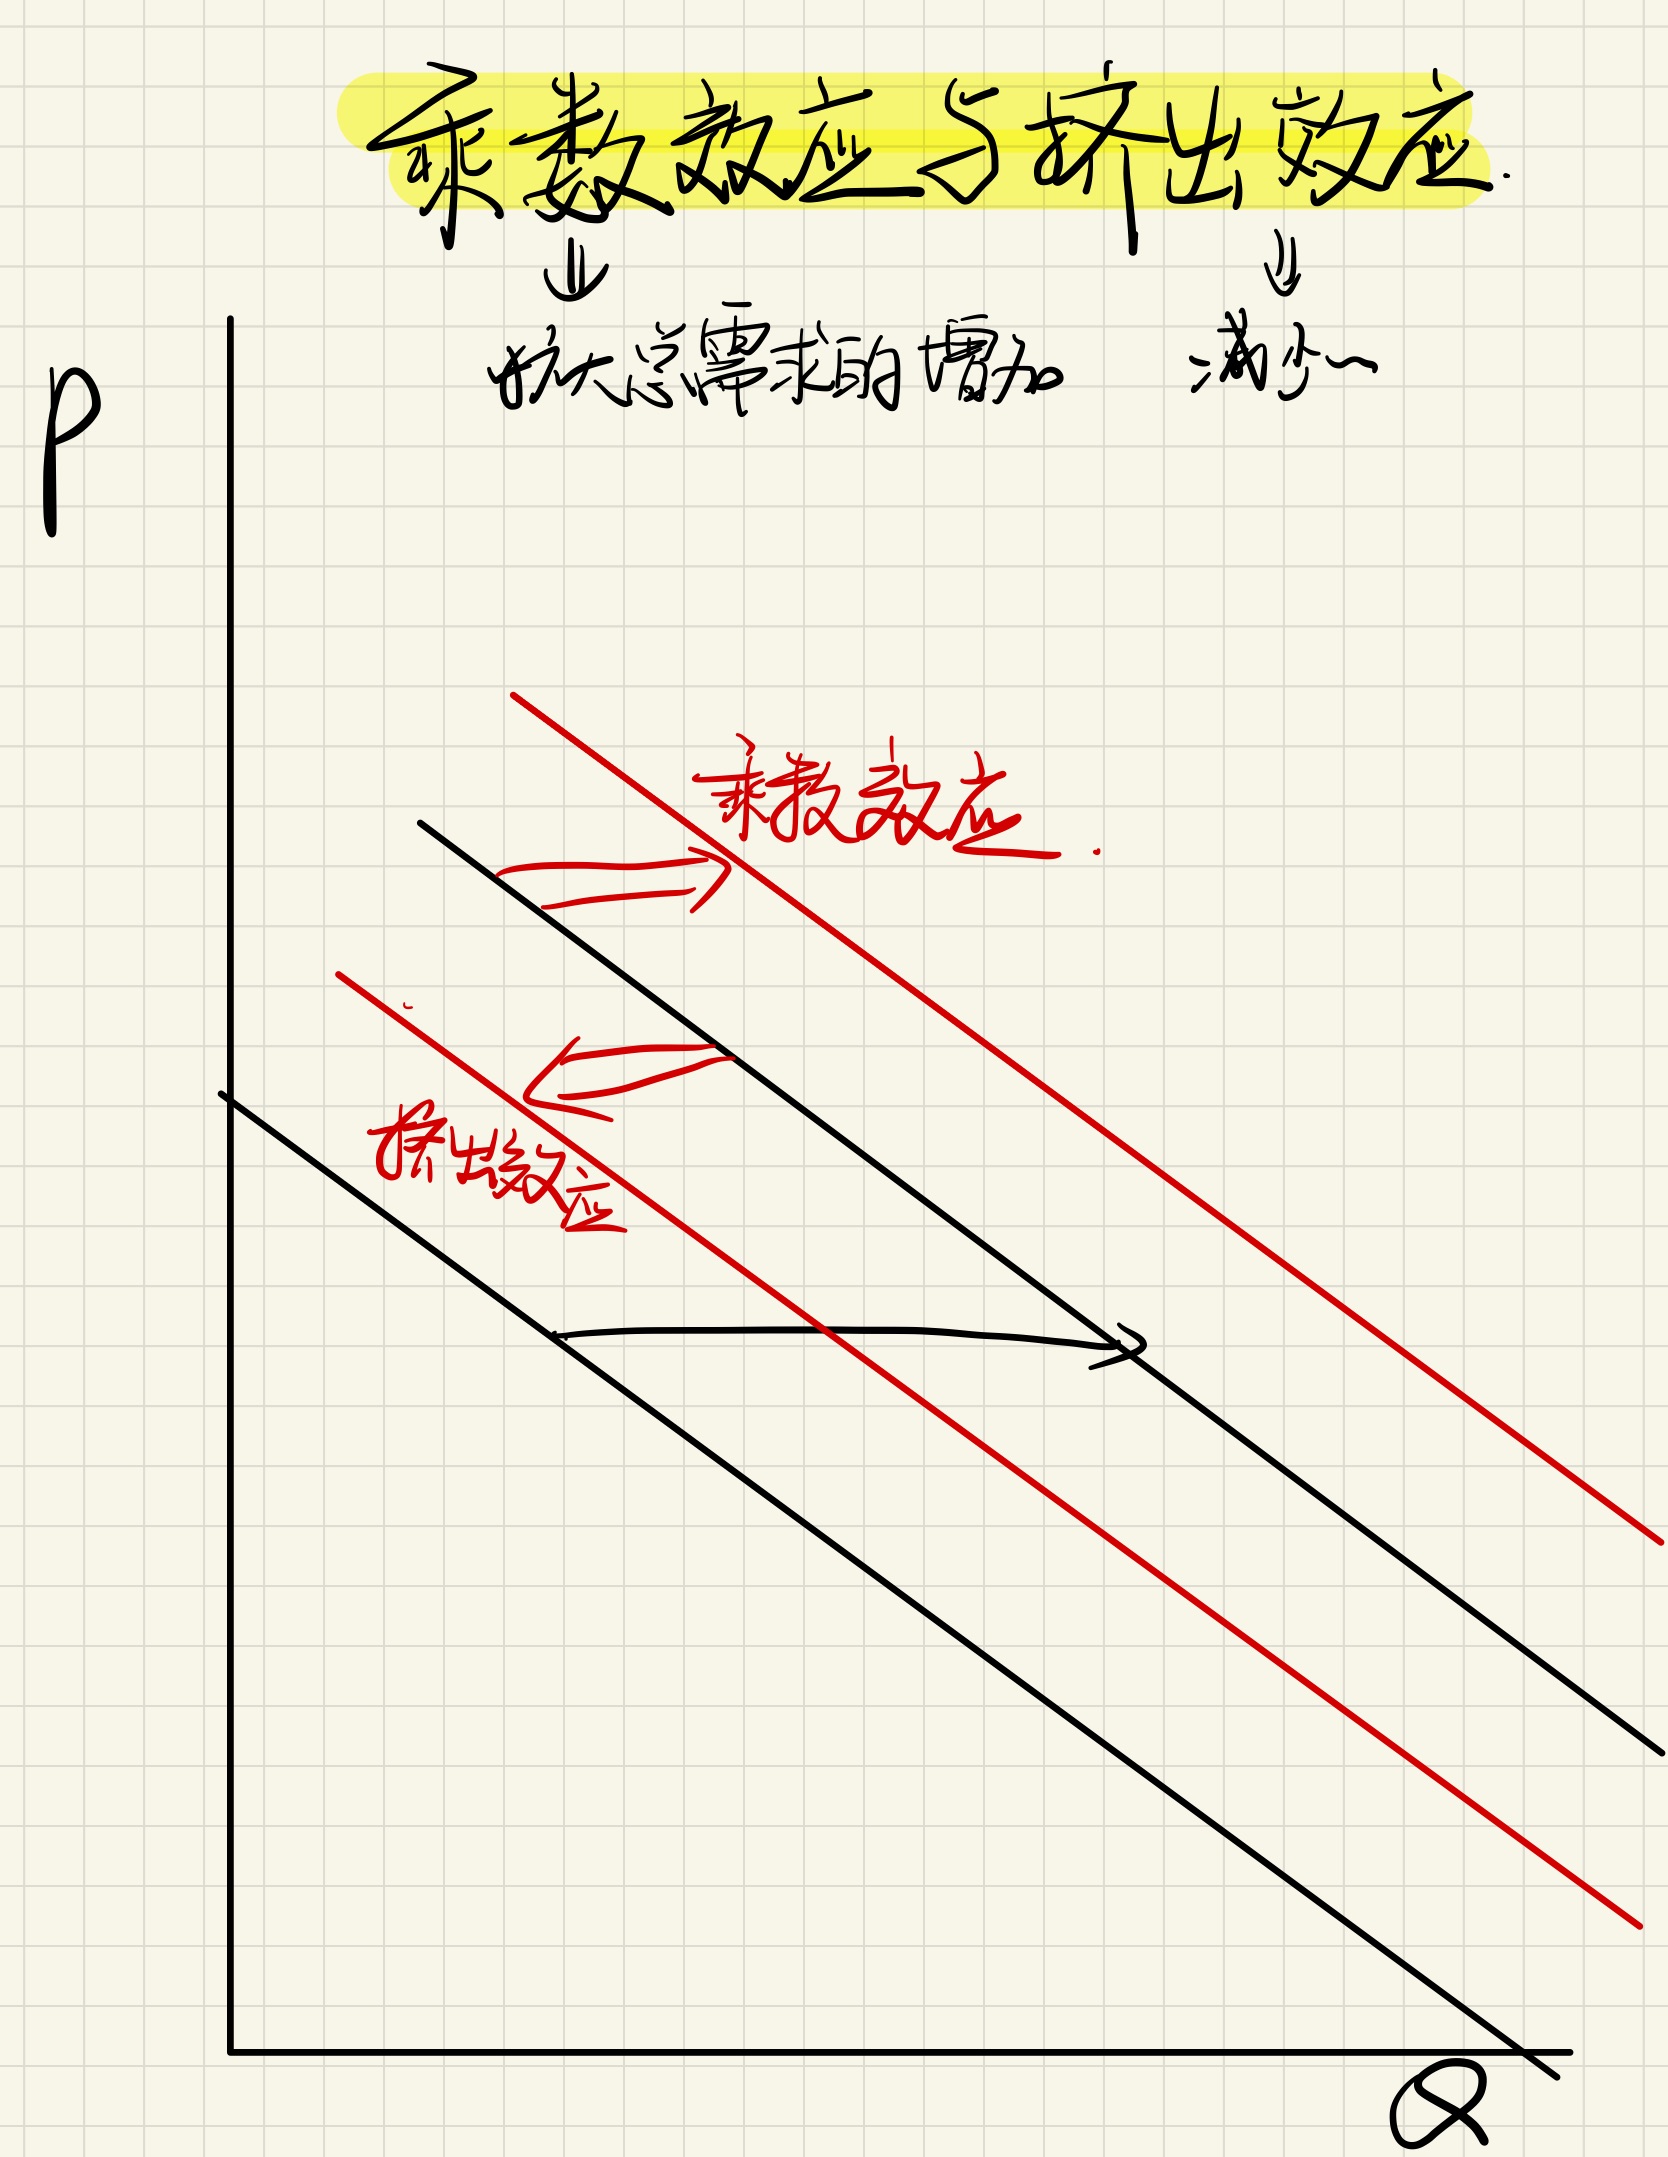 乘数效应与挤出效应.
扩大总需求的增加 减少~
P
乘数效应.
挤出效应
Q